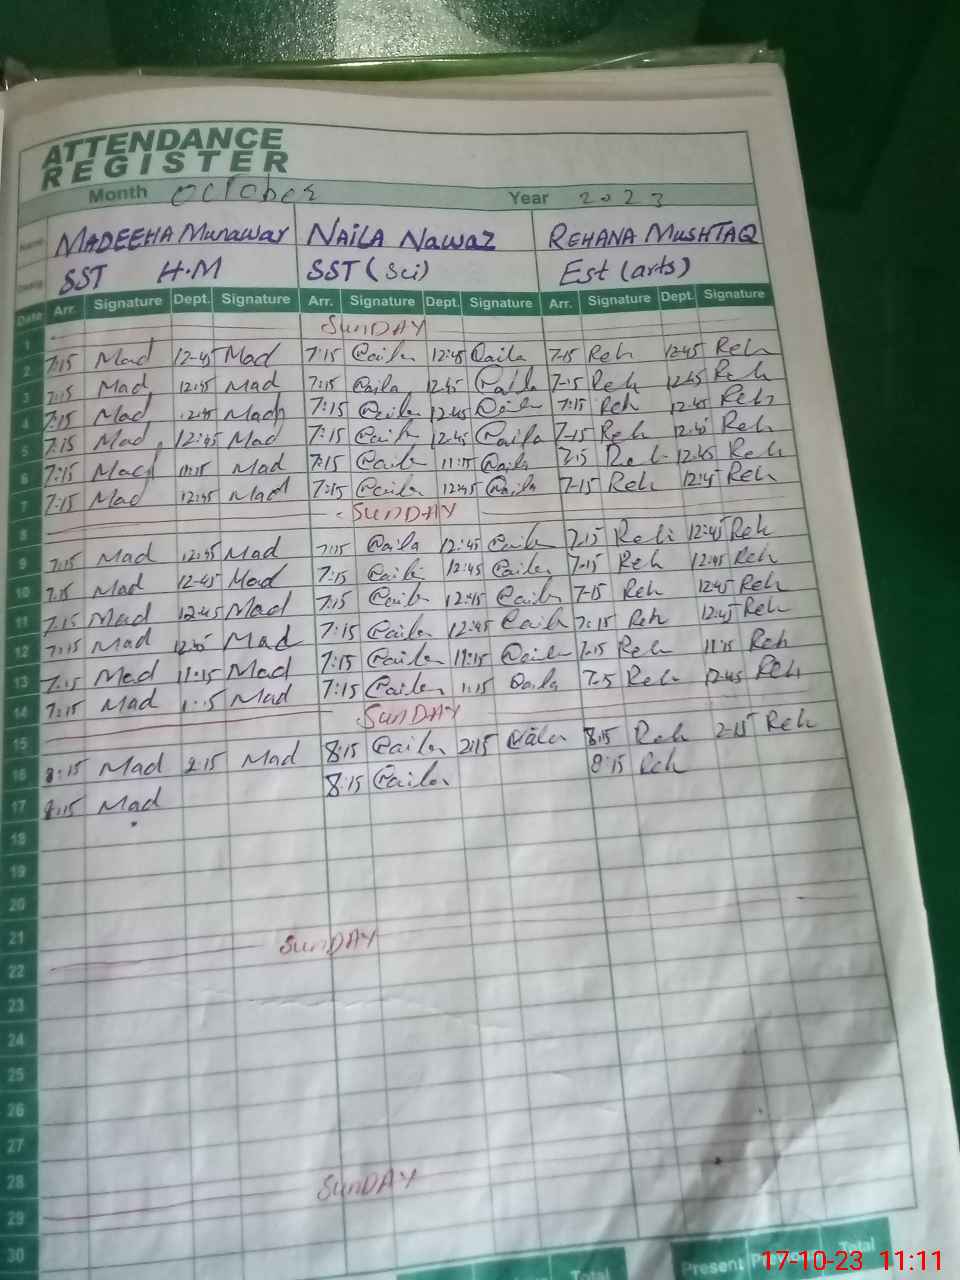 ATTENDANCE
REGISTER
Month October Year 2023
Name MADEEHA Munawar NAILA Nawaz REHANA MUSHTAQ
Desig. SST H.M SST (Sci) Est (arts)
Date Arr. Signature Dept. Signature Arr. Signature Dept. Signature Arr. Signature Dept. Signature
1 SUNDAY
2 7:15 Mad 12-45 Mad 7:15 12:45 7-15 Reh 12:45 Reh
3 7:15 Mad 12:45 Mad 7:15 12:45 7-15 Reh 12:45 Reh
4 7:15 Mad 12:45 Mad 7:15 12:45 7:15 Reh 12:45 Reh
5 7:15 Mad 12:45 Mad 7:15 12:45 7-15 Reh 12:45 Reh
6 7:15 Mad 11:15 Mad 7:15 11:15 7:15 Reh 12:45 Reh
7 7:15 Mad 12:45 Mad 7:15 12:45 7-15 Reh 12:45 Reh
8 SUNDAY
9 7:15 Mad 12:45 Mad 7:15 12:45 7:15 Reh 12:45 Reh
10 7:15 Mad 12-45 Mad 7:15 12:45 7-15 Reh 12:45 Reh
11 7:15 Mad 12:45 Mad 7:15 12:45 7-15 Reh 12:45 Reh
12 7:15 Mad Mad 7:15 12:45 7:15 Reh 12:45 Reh
13 7:15 Mad 11:15 Mad 7:15 11:15 7:15 Reh 11:15 Reh
14 7:15 Mad Mad 7:15 Reh 12:45 Reh
15 SUNDAY
16 8:15 Mad 2:15 Mad 8:15 2:15 8:15 Reh 2-15 Reh
17 8:15 Mad 8:15 8:15 Reh
18
19
20
21
22 SUNDAY
23
24
25
26
27
28
29 SUNDAY
30
Total Present Total
17-10-23 11:11